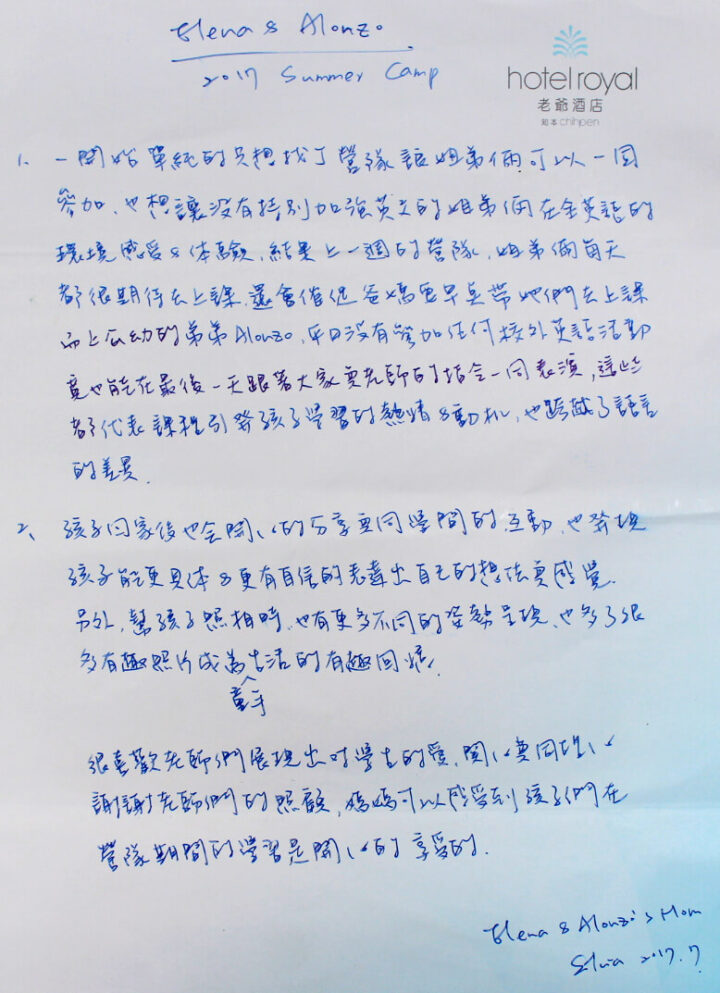 Elena & Alonzo
2017 Summer Camp
hotel royal
老爺酒店
知本 chihpen
1. 一開始單純的只想找個營隊讓姐弟倆可以一同
參加,也想讓沒有特別加強英文的姐弟倆在全英語的
環境感受&体驗,結果上一週的營隊,姐弟倆每天
都很期待去上課,還會催促爸媽要早點帶她們去上課
而上公幼的弟弟Alonzo,平日沒有參加任何校外英語活動
竟也能在最後一天跟著大家與老師的指令一同表演,這些
都代表課程引發孩子學習的熱情&動机,也跨越了語言
的差異.
2、孩子回家後也会開心的分享與同學間的互動,也發現
孩子能更具体&更有自信的表達出自己的想法與感覺.
另外,幫孩子照相時,也有更多不同的姿勢呈現,也多了很
多有趣照片成為生活的有趣回憶.
很喜歡老師們展現出对學生的愛,開心與同理心
謝謝老師們的照顧,媽媽可以感受到孩子們在
營隊期間的學習是開心的享受的.
Elena & Alonzo's Mom
Silvia 2017.7